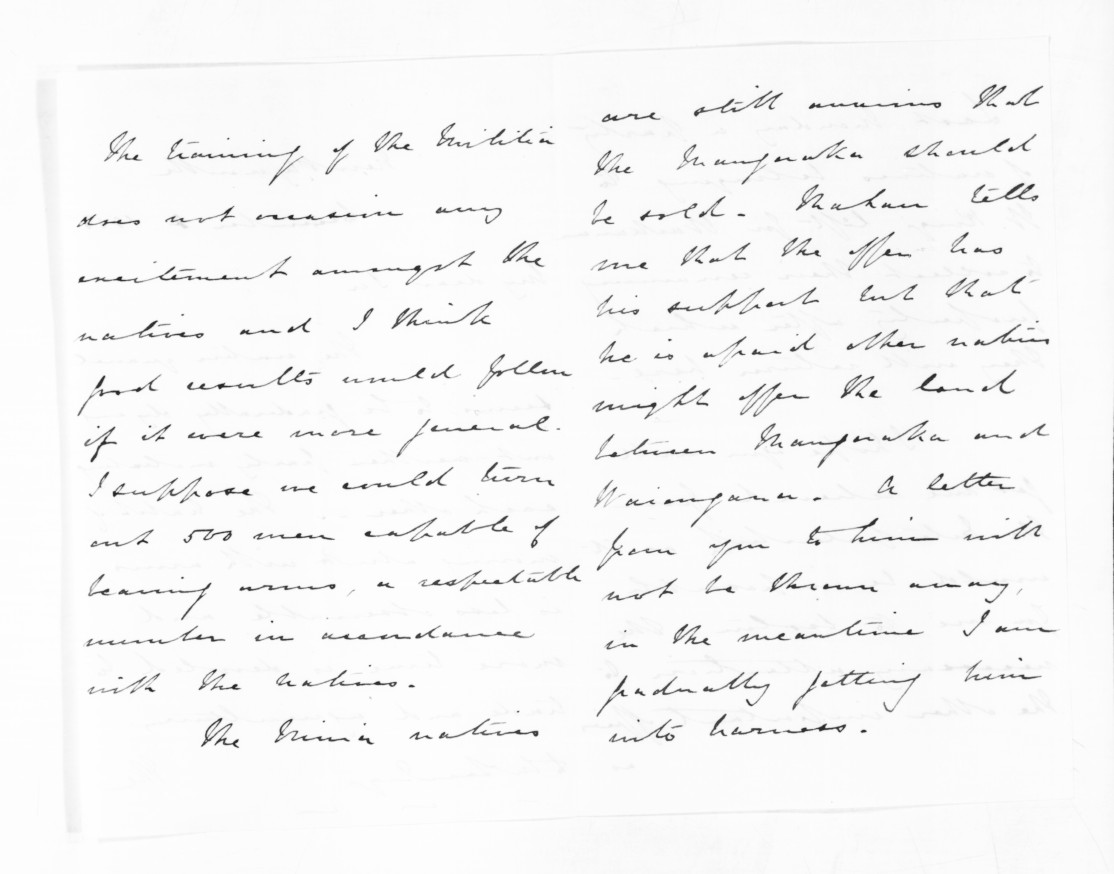 The training of the Militia
does not occasion any
excitement amongst the
natives and I think
good results would follow
if it were more general.
I suppose we could turn
out 500 men capable of
bearing arms, a respectable
number in accordance
with the natives.
The Ninia natives
are still anxious that
the Mangoraka should
be sold. Mahau tells
me that the offer has
his support but that
he is afraid other natives
might offer the land
between Mangoraka and
Waiongana. A letter
from you to him will
not be thrown away,
in the meantime I am
gradually getting him
into harness.